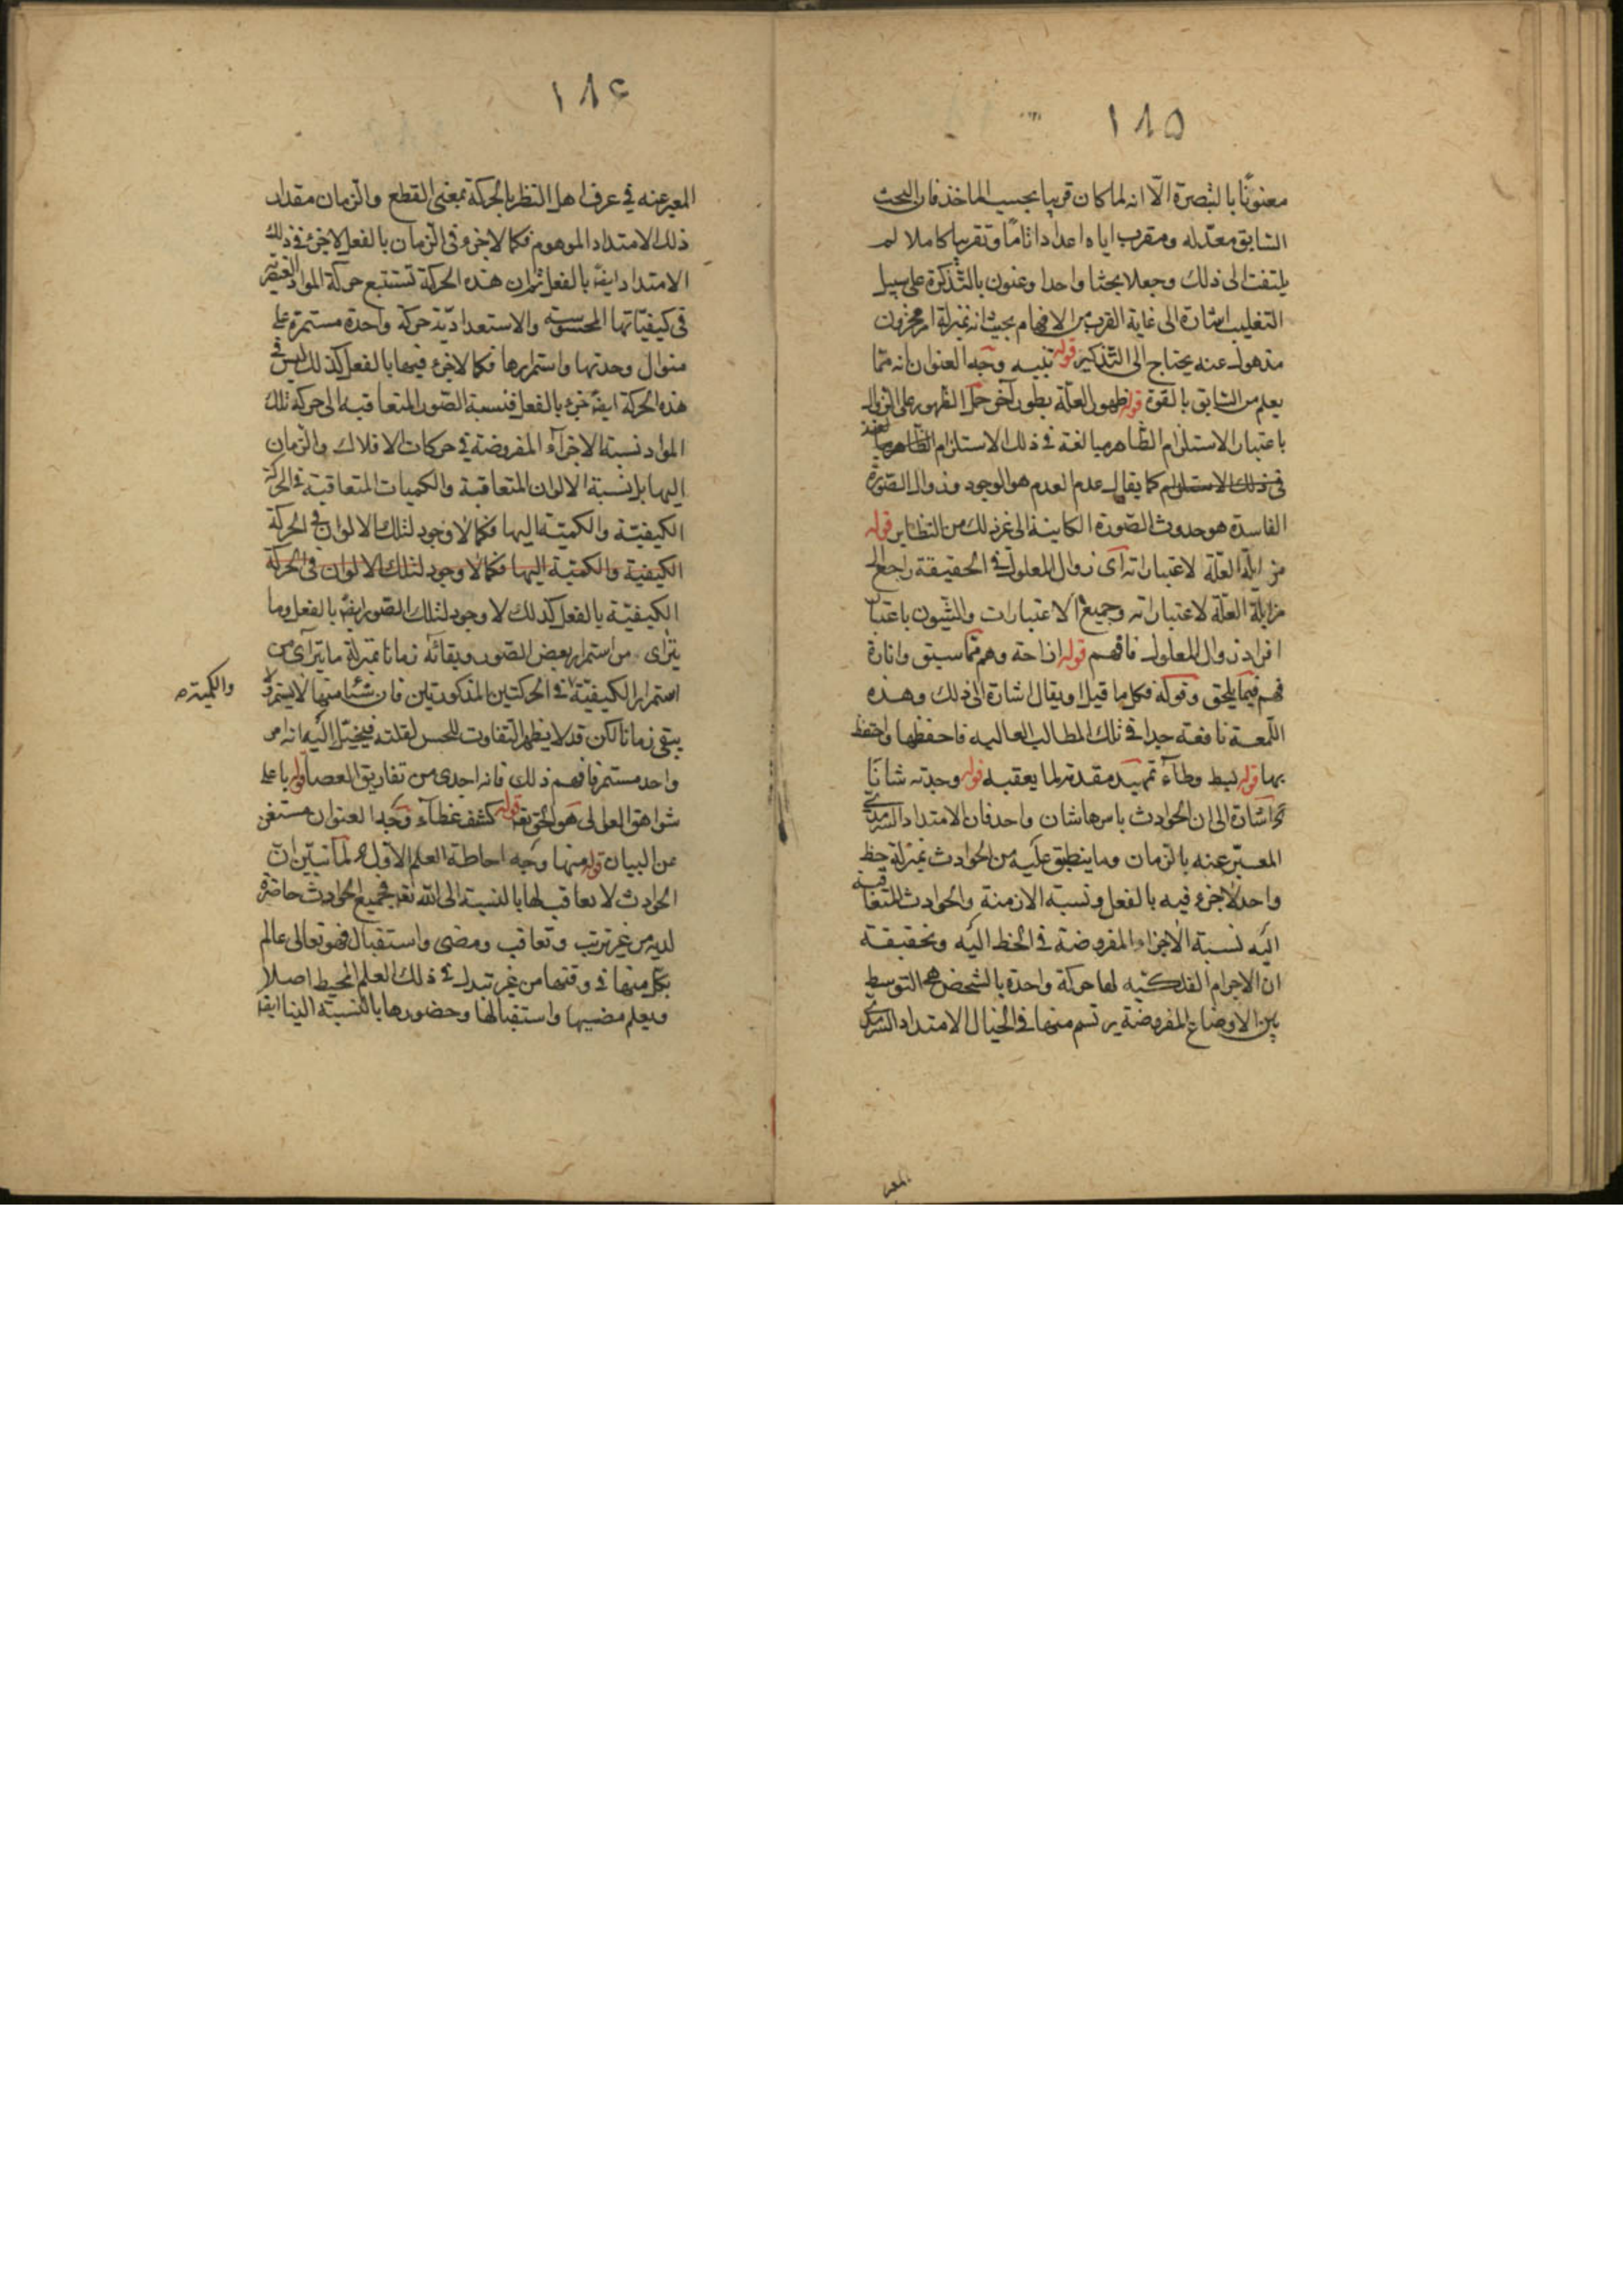 ١٨٥
معنونًا بالتبصرة الّا انه لما كان قريبا بحسب الماخذ فان البحث
السّابق معدّ له ومقرب اياه اعدادا تامّا وتقريبا كاملا لم
يلتفت الى ذلك وجعلا بحثا واحدا وعنون بالتّذكرة على سبيل
التغليب اشارة الى غاية القرب من الافهام بحيث انه بمنزلة امر مخزون
مذهول عنه يحتاج الى التّذكير قوله تنبيه وجه العنوان انه ممّا
يعلم من السّابق بالقوة قوله ظهور العلّة بطور آخر حمل الظهور على الزوال
باعتبار الاستلزام الظّاهر مبالغة في ذلك الاستلزام الظاهر مبالغة
في ذلك الاستلزام كما يقال عدم العدم هو الوجود وزوال الصّورة
الفاسدة هو حدوث الصّورة الكاينة الى غير ذلك من النظاير قوله
مزايلة العلّة لاعتباراته اى زوال المعلول في الحقيقة راجع الى
مزايلة العلّة لاعتباراته وجميع الاعتبارات والشّيون باعتبار
افراد زوال المعلول فافهم قوله ازاحة وهم ممّا سبق وانارة
فهم فيما يلحق وقوله فكل ما قيل او يقال اشارة الى ذلك وهذه
اللّمعة نافعة جدا في تلك المطالب العاليه فاحفظها واحتفظ
بها قوله بسط وطآء تمهيد مقدمة لما يعقبه قوله وجدته شانًا
اشارة الى ان الحوادث باسرها شان واحد فان الامتداد السّرمدى
المعبّر عنه بالزمان وما ينطبق عليه من الحوادث بمنزلة خط
واحد لا جزء فيه بالفعل ونسبة الازمنة والحوادث المتعاقبة
اليه نسبة الاجزاء المفروضة في الخط اليه وتحقيقه
ان الاجرام الفلكيّه لها حركة واحدة بالشخص هى التوسط
بين الاوضاع المفروضة يرتسم منها في الخيال الامتداد السّرمدى
المعبر
١٨٤
المعبر عنه في عرف اهل النظر بالحركة بمعنى القطع والزمان مقدار
ذلك الامتداد الموهوم فكما لا جزء فى الزمان بالفعل لا جزء في ذلك
الامتداد ايضا بالفعل ثم ان هذه الحركة تستتبع حركة المواد العنصرية
فى كيفيّاتها المحسوسه والاستعداديّة حركة واحدة مستمرة على
منوال وحدتها واستمرارها فكما لا جزء فيها بالفعل كذلك ليس في
هذه الحركة ايضا جزء بالفعل فنسبة الصّور المتعاقبه الى حركة تلك
المواد نسبة الاجزآء المفروضة في حركات الافلاك والزمان
اليها بل نسبة الالوان المتعاقبة والكميات المتعاقبة في الحركة
الكيفيّة والكميّة اليها فكما لا وجود لتلك الالوان في الحركة
الكيفية والكمّيّة اليها فكما لا وجود لتلك الالوان فى الحركة
الكيفيّة بالفعل كذلك لا وجود لتلك الصّور ايضا بالفعل وما
يترآى من استمرار بعض الصّور وبقائه زمانا بمنزلة ما يترآى من
استمرار الكيفيّة في الحركتين المذكورتين فان شئا منها لا يستمر ولا
والكمية صح
يبقى زمانا لكن قد لا يظهر التفاوت للحس لقلته فيخيّل اليه انه امر
واحد مستمر فافهم ذلك فانه اجدى من تفاريق العصا قوله باعلى
شواهق العوالى هو الحق تعالى قوله كشف غطآء وجه العنوان مستغن
عن البيان قوله منها وجه احاطة العلم الاوّل لمّا تبيّن ان
الحوادث لا تعاقب لها بالنسبة الى الله تعالى فجميع الحوادث حاضرة
لديه من غير ترتب وتعاقب ومضى واستقبال فهو تعالى عالم
بكل منها في وقتها من غير تبدل في ذلك العلم المحيط اصلا
ويعلم مضيها واستقبالها وحضورها بالنّسبة الينا ايضا